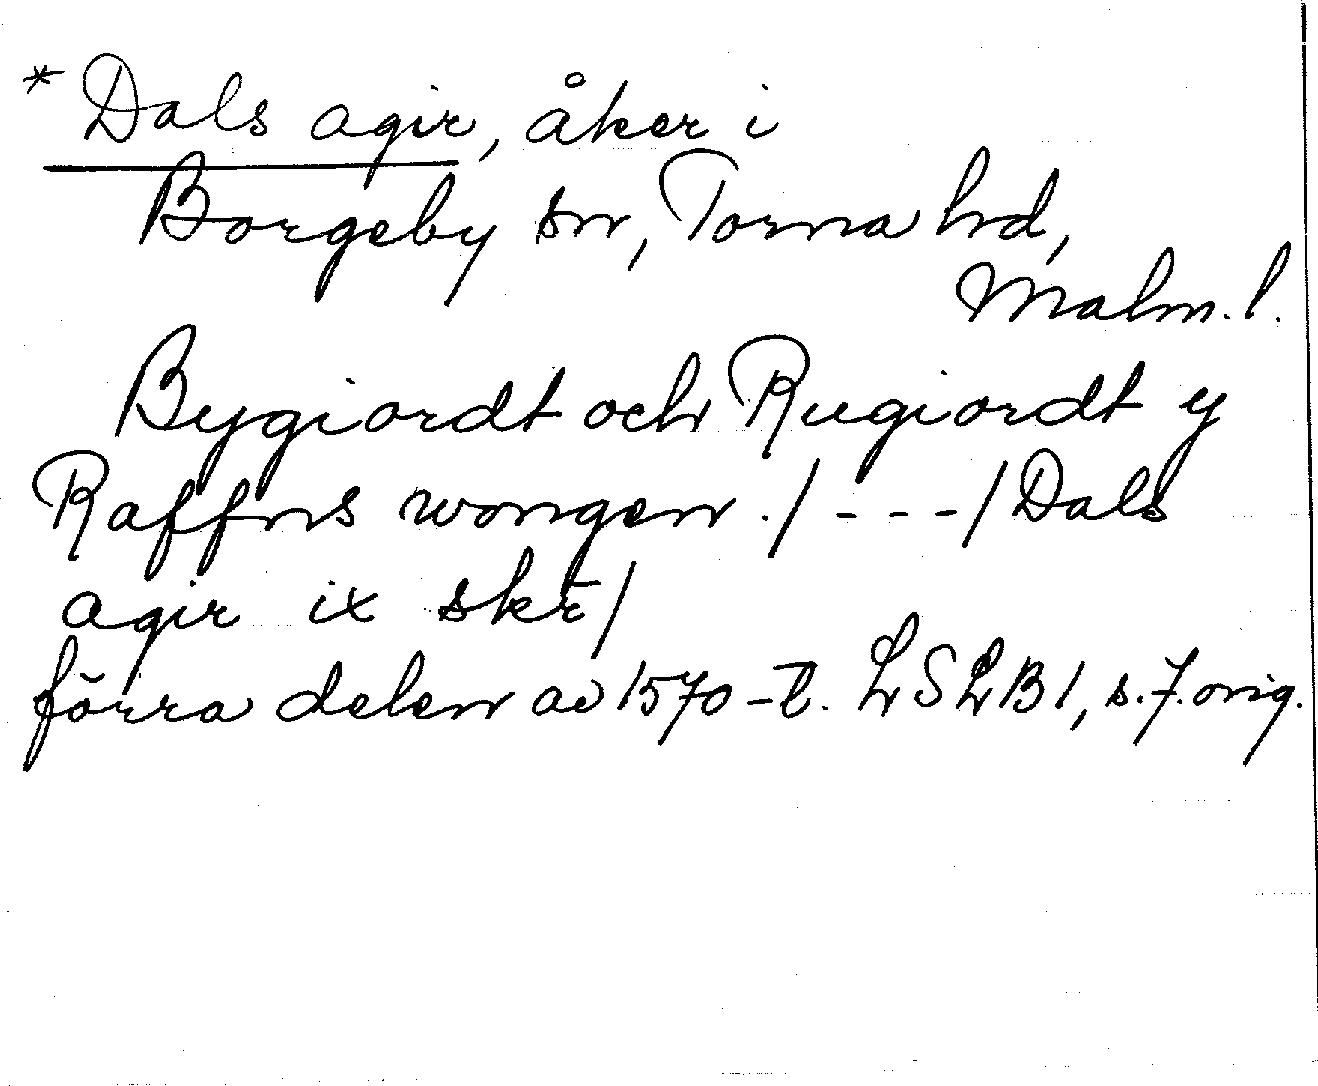 * Dals agir, åker i
Borgeby sn, Torna hd,
Malm. l.
Bygiordt och Rugiordt y
Raffns wongen. / - - - / Dals
agir ix skr̄ /
förra delen av 1570-t. LSLB 1, s. 7. orig.